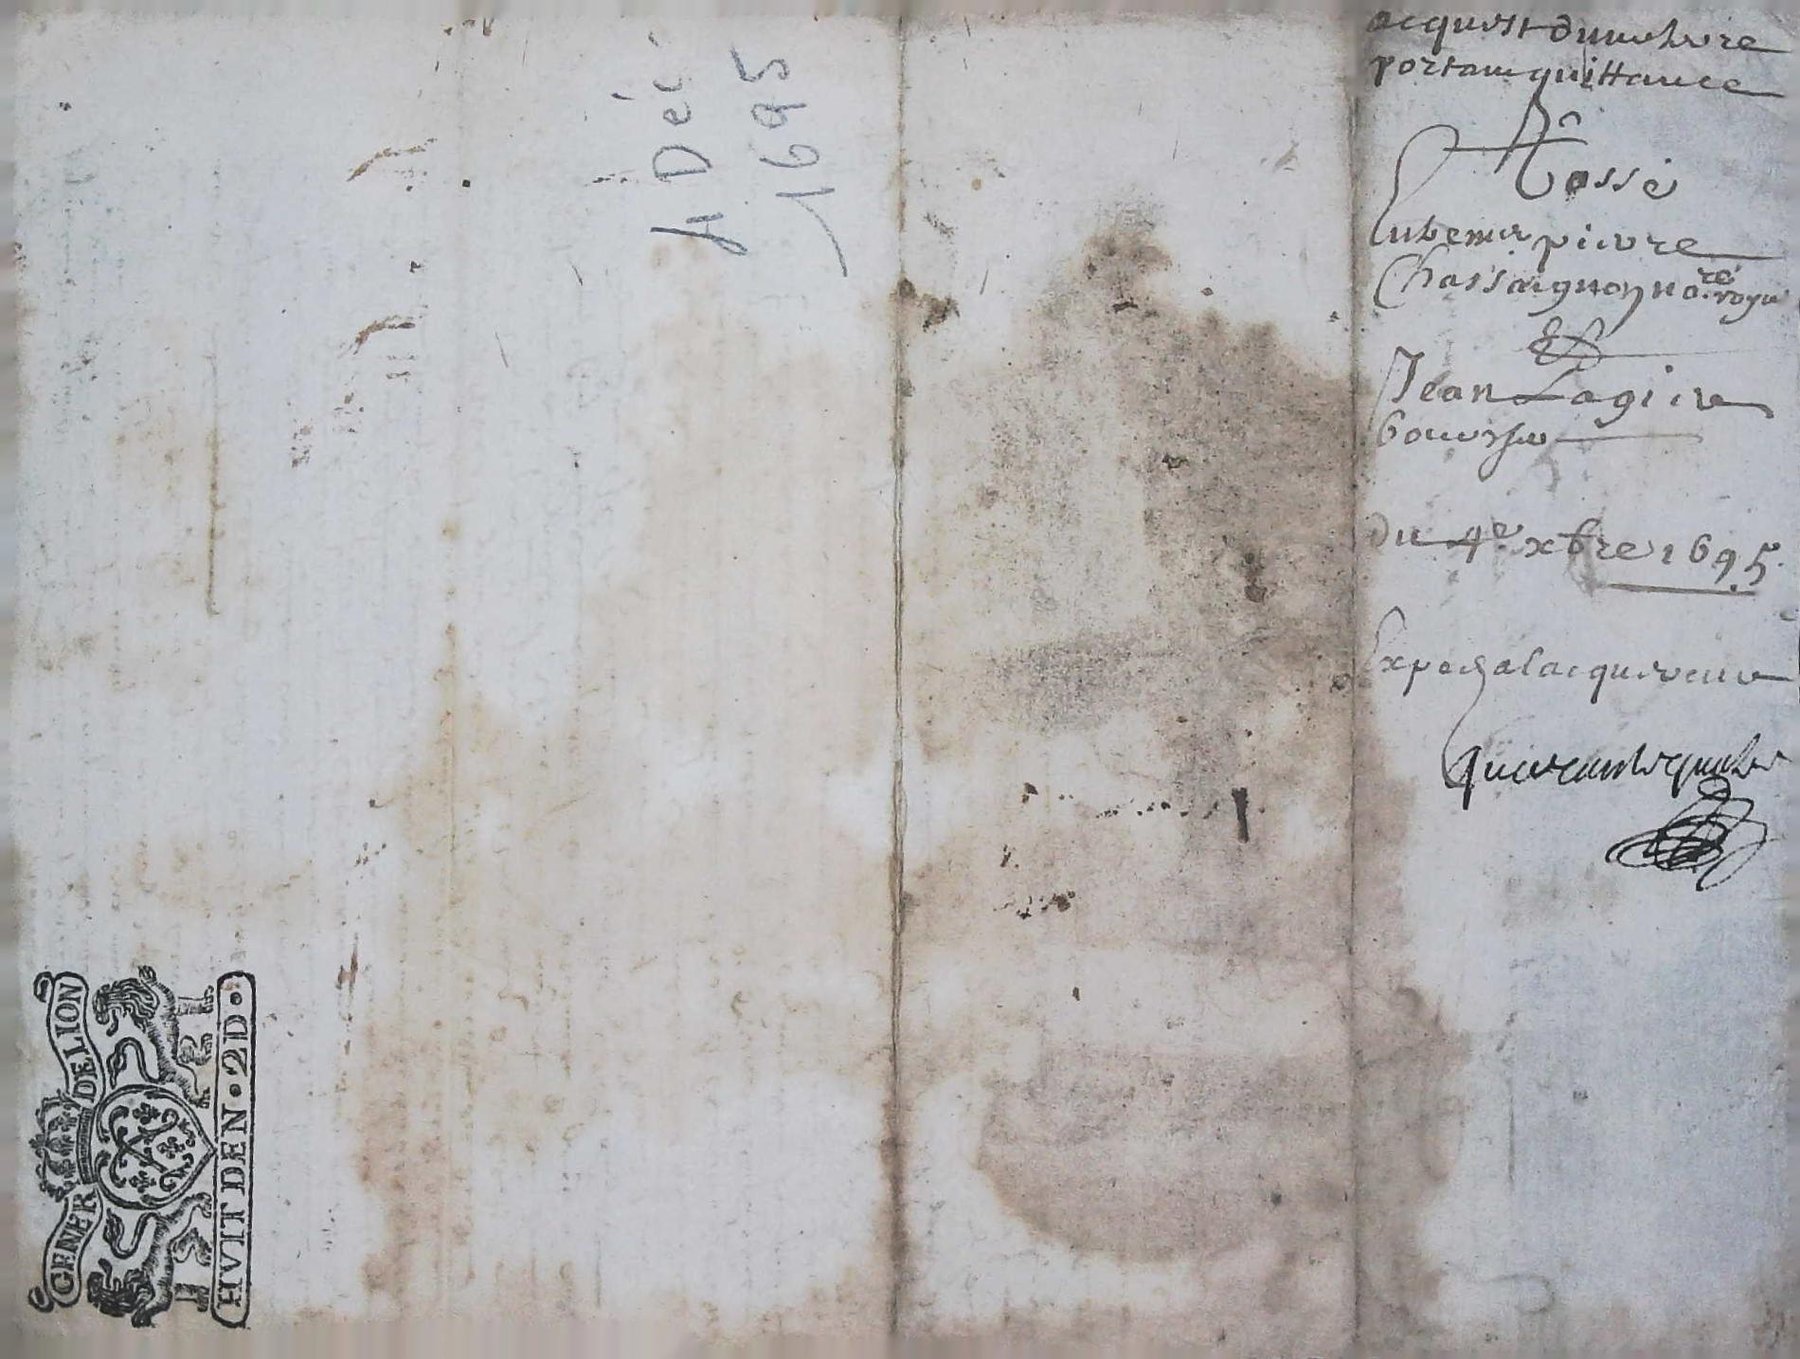 acquest dung chire
portant quittance
Passé
entre Mre pierre
Chassaignon no.re royal
Et
Jean Lagier
du 4e xbre 1695
Exped. a lacquereur
quarante quatre
4 Déc
1695
GENER DE LION
HVIT DEN • 2D •